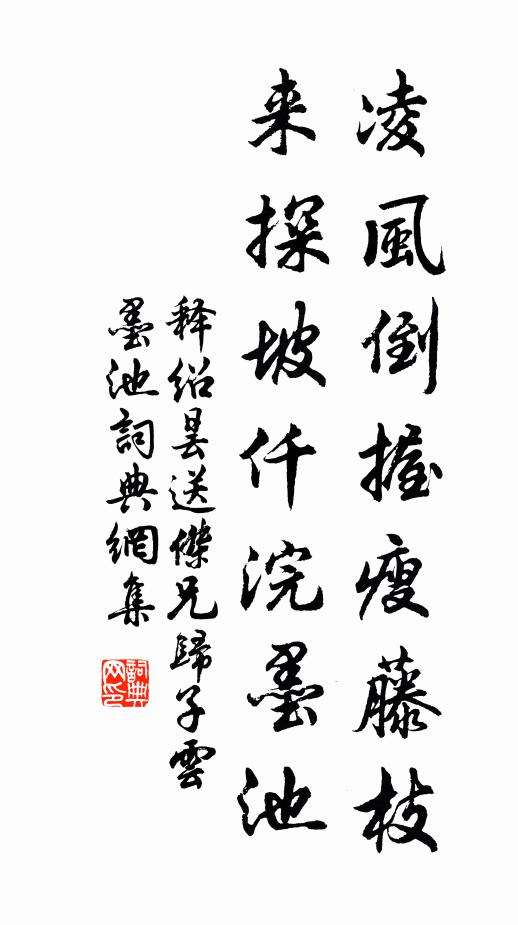 凌風倒握瘦藤枝
来探坡仟浣墨池
释绍昙送傑兄歸子雲
墨池詞典網集
詞典网印